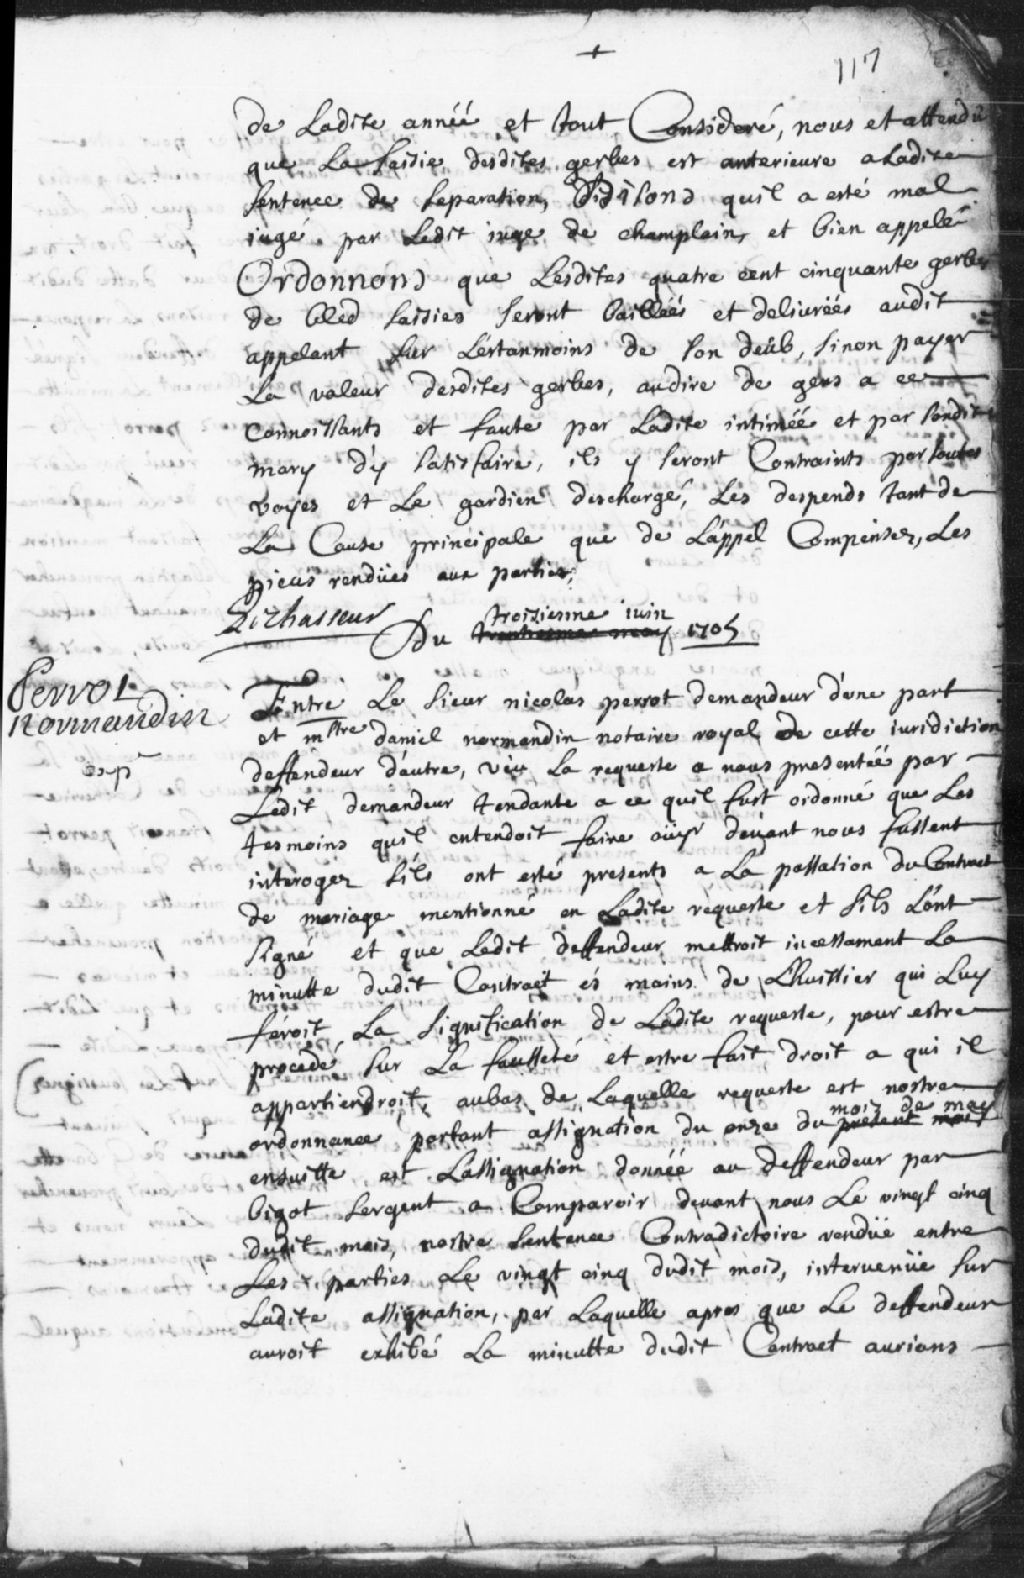 117
de Ladite année et tout Consideré, nous et attendu
que La saisie desdites gerbes est anterieure a Ladite
sentence de separation, Disons quil a esté mal
iugé par Ledit iuge de champlain, et bien appelé
Ordonnons que Lesdites quatre cent cinquante gerbes
de bled saisies seront baillées et deliurées audit
appelant sur Lestanmoins de son deub, sinon payer
La valeur desdites gerbes, audire de gens a ce
connoissants et faute par Ladite intimée et par sondit
mary d'y satisfaire, ils y seront Contraints par toutes
voyes et Le gardien deschargé, Les despends tant de
La Cause principale que de L'appel Compensez, Les
pieces rendües aux parties,
Dechasseur
troiziesme iuin
Du 1705
Perrot
Normandin
Entre Le sieur nicolas perrot demandeur d'une part
et mttre daniel normandin notaire royal de cette iuridiction
deffendeur d'autre, vëu La requeste a nous presentée par
exp
Ledit demandeur tendante a ce quil fust ordonné que Les
tesmoins quil entendoit faire oüyr deuant nous fussent
interogez sils ont esté presents a La passation du Contract
de mariage mentionné en Ladite requeste et sils L'ont
signé et que Ledit deffendeur mettroit incessament La
minutte dudit Contract és mains de L'huissier qui Luy
feroit La signification de Ladite requeste, pour estre
procedé sur La fausseté et estre fait droit a qui il
appartiendroit, aubas de Laquelle requeste est nostre
mois de may
ordonnance portant assignation du onze du present mois
ensuitte est L'assignation donnée au deffendeur par
bigot sergent a Comparoir deuant nous Le vingt cinq
dudit mois, nostre sentence Contradictoire rendüe entre
Les parties Le vingt cinq dudit mois, interuenüe sur
Ladite assignation, par Laquelle apres que Le deffendeur
auroit exhibé La minutte dudit Contract aurions